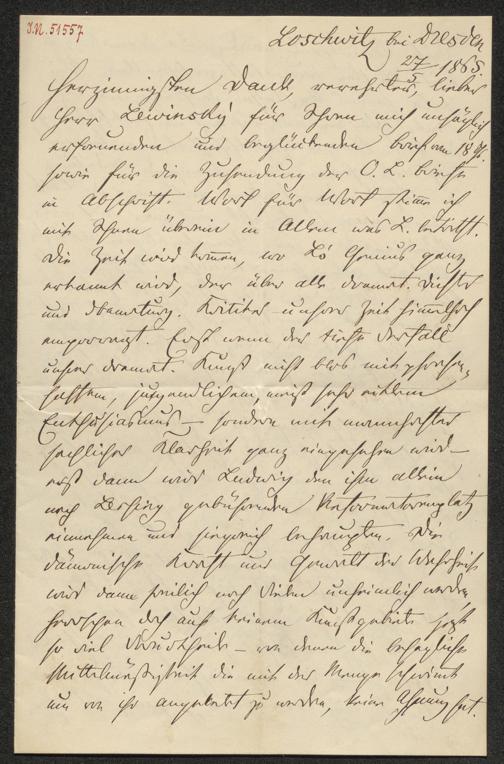 J.N. 51557
Loschwitz bei Dresden
27/5 1865
Herzinnigsten Dank, verehrter, lieber
Herr Lewinsky für Ihren mich unsäglich
erfreuenden und beglückenden Brief vom 18.
sowie für die Zusendung der O. L. briefe
in Abschrift. Wort für Wort stimme ich
mit Ihnen überein in Allem was L. betrifft.
Die Zeit wird kommen, wo L's Genius ganz
erkannt wird, der über alle dramat. Dichter
und Dramaturg. Kritiker unserer Zeit himmelhoch
emporragt. Erst wenn der tiefe Verfall
unserer dramat. Kunst nicht blos mit phrasen-
haften, jugendlichem, meist sehr eitlem
Enthusiasmus – sondern mit mannhafter
sachlicher Klarheit ganz eingesehen wird –
erst dann wird Ludwig den ihm allein
nach Lessing gebührenden Reformatorenplatz
einnehmen und siegreich behaupten. Die
dämonische Kraft und Gewalt der Wahrheit
wird dann freilich noch Vielen unheimlich werden
herrschen doch auf keinem Kunstgebiete jetzt
so viel Vorurtheile – von denen die behagliche
Mittelmäßigkeit die mit der Menge schwimmt
um von ihr angebetet zu werden, keine Ahnung hat.